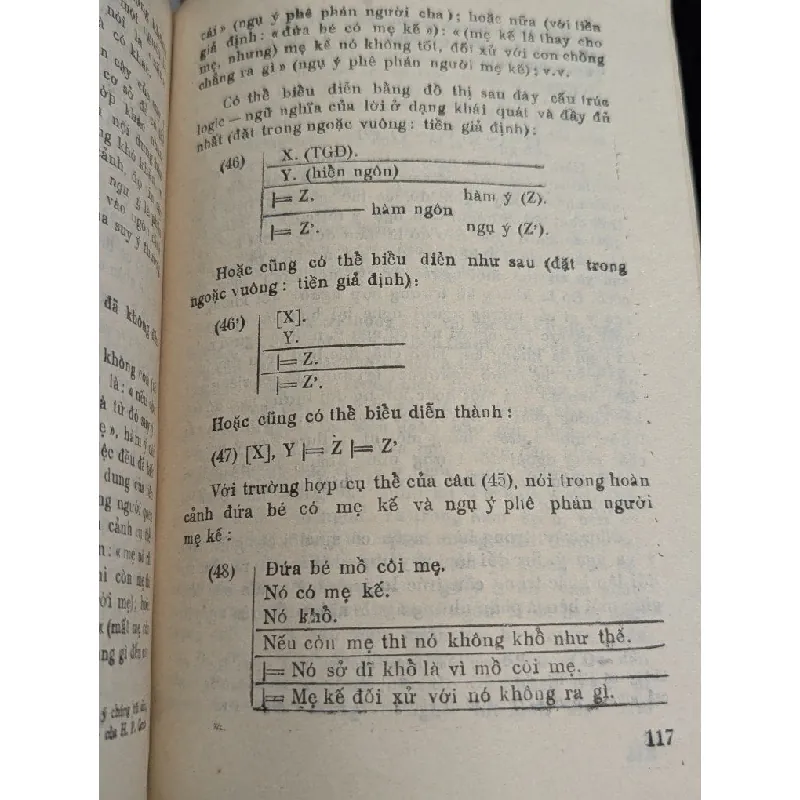 cái» (ngụ ý phê phán người cha); hoặc nữa (với tiền
giả định: «đứa bé có mẹ kế»): «(mẹ kế là thay cho
mẹ, nhưng) mẹ kế nó không tốt, đối xử với con chồng
chẳng ra gì» (ngụ ý phê phán người mẹ kế); v.v.
Có thể biểu diễn bằng đồ thị sau đây cấu trúc
logic — ngữ nghĩa của lời ở dạng khái quát và đầy đủ
nhất (đặt trong ngoặc vuông: tiền giả định):
(46) X. (TGĐ).
Y. (hiển ngôn)
|= Z. hàm ý (Z).
hàm ngôn
|= Z'. ngụ ý (Z').
Hoặc cũng có thể biểu diễn như sau (đặt trong
ngoặc vuông: tiền giả định):
(46') [X].
Y.
|= Z.
|= Z'.
Hoặc cũng có thể biểu diễn thành:
(47) [X], Y |= Z |= Z'
Với trường hợp cụ thể của câu (45), nói trong hoàn
cảnh đứa bé có mẹ kế và ngụ ý phê phán người
mẹ kế:
(48) Đứa bé mồ côi mẹ.
Nó có mẹ kế.
Nó khổ.
Nếu còn mẹ thì nó không khổ như thế.
|= Nó sở dĩ khổ là vì mồ côi mẹ.
|= Mẹ kế đối xử với nó không ra gì.
117